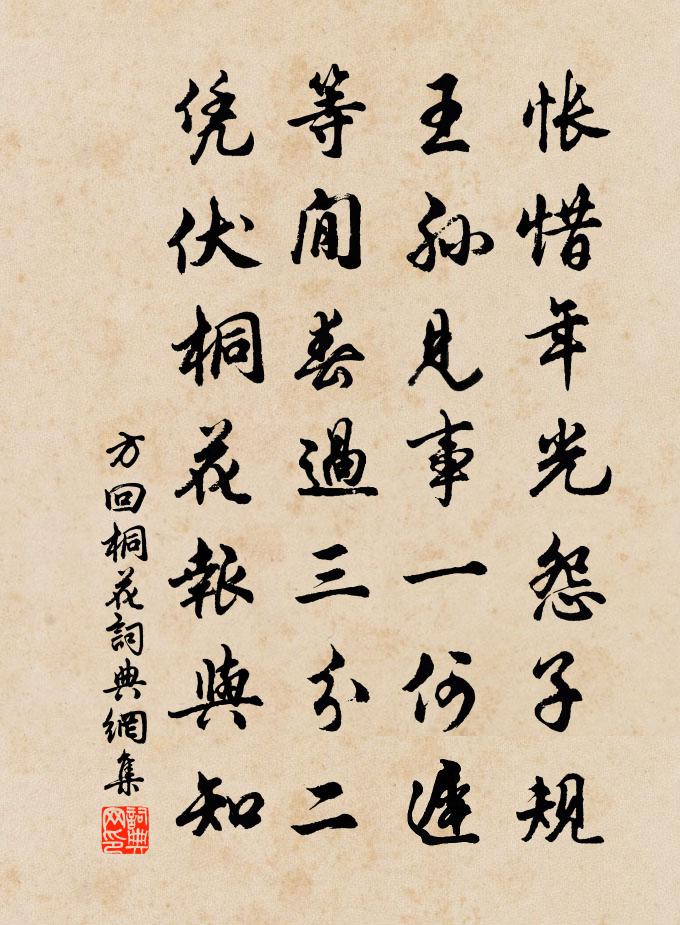 悵惜年光怨子規
王孫見事一何遲
等閒春過三分二
凭伏桐花報與知
方回桐花詞典網集
詞典网印